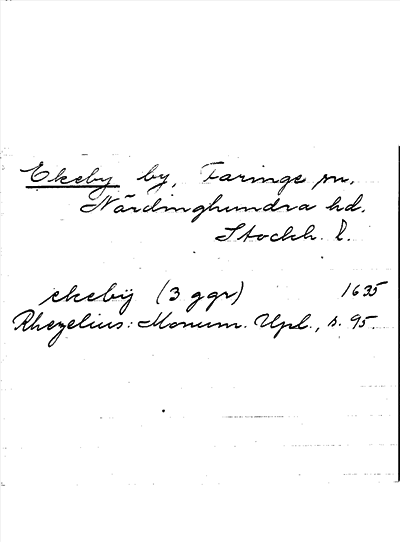 Ekeby by, Faringe sn.
Närdinghundra hd.
Stockh. l.
ekebÿ (3 ggr) 1635
Rhezelius: Monum. Upl., s. 95.